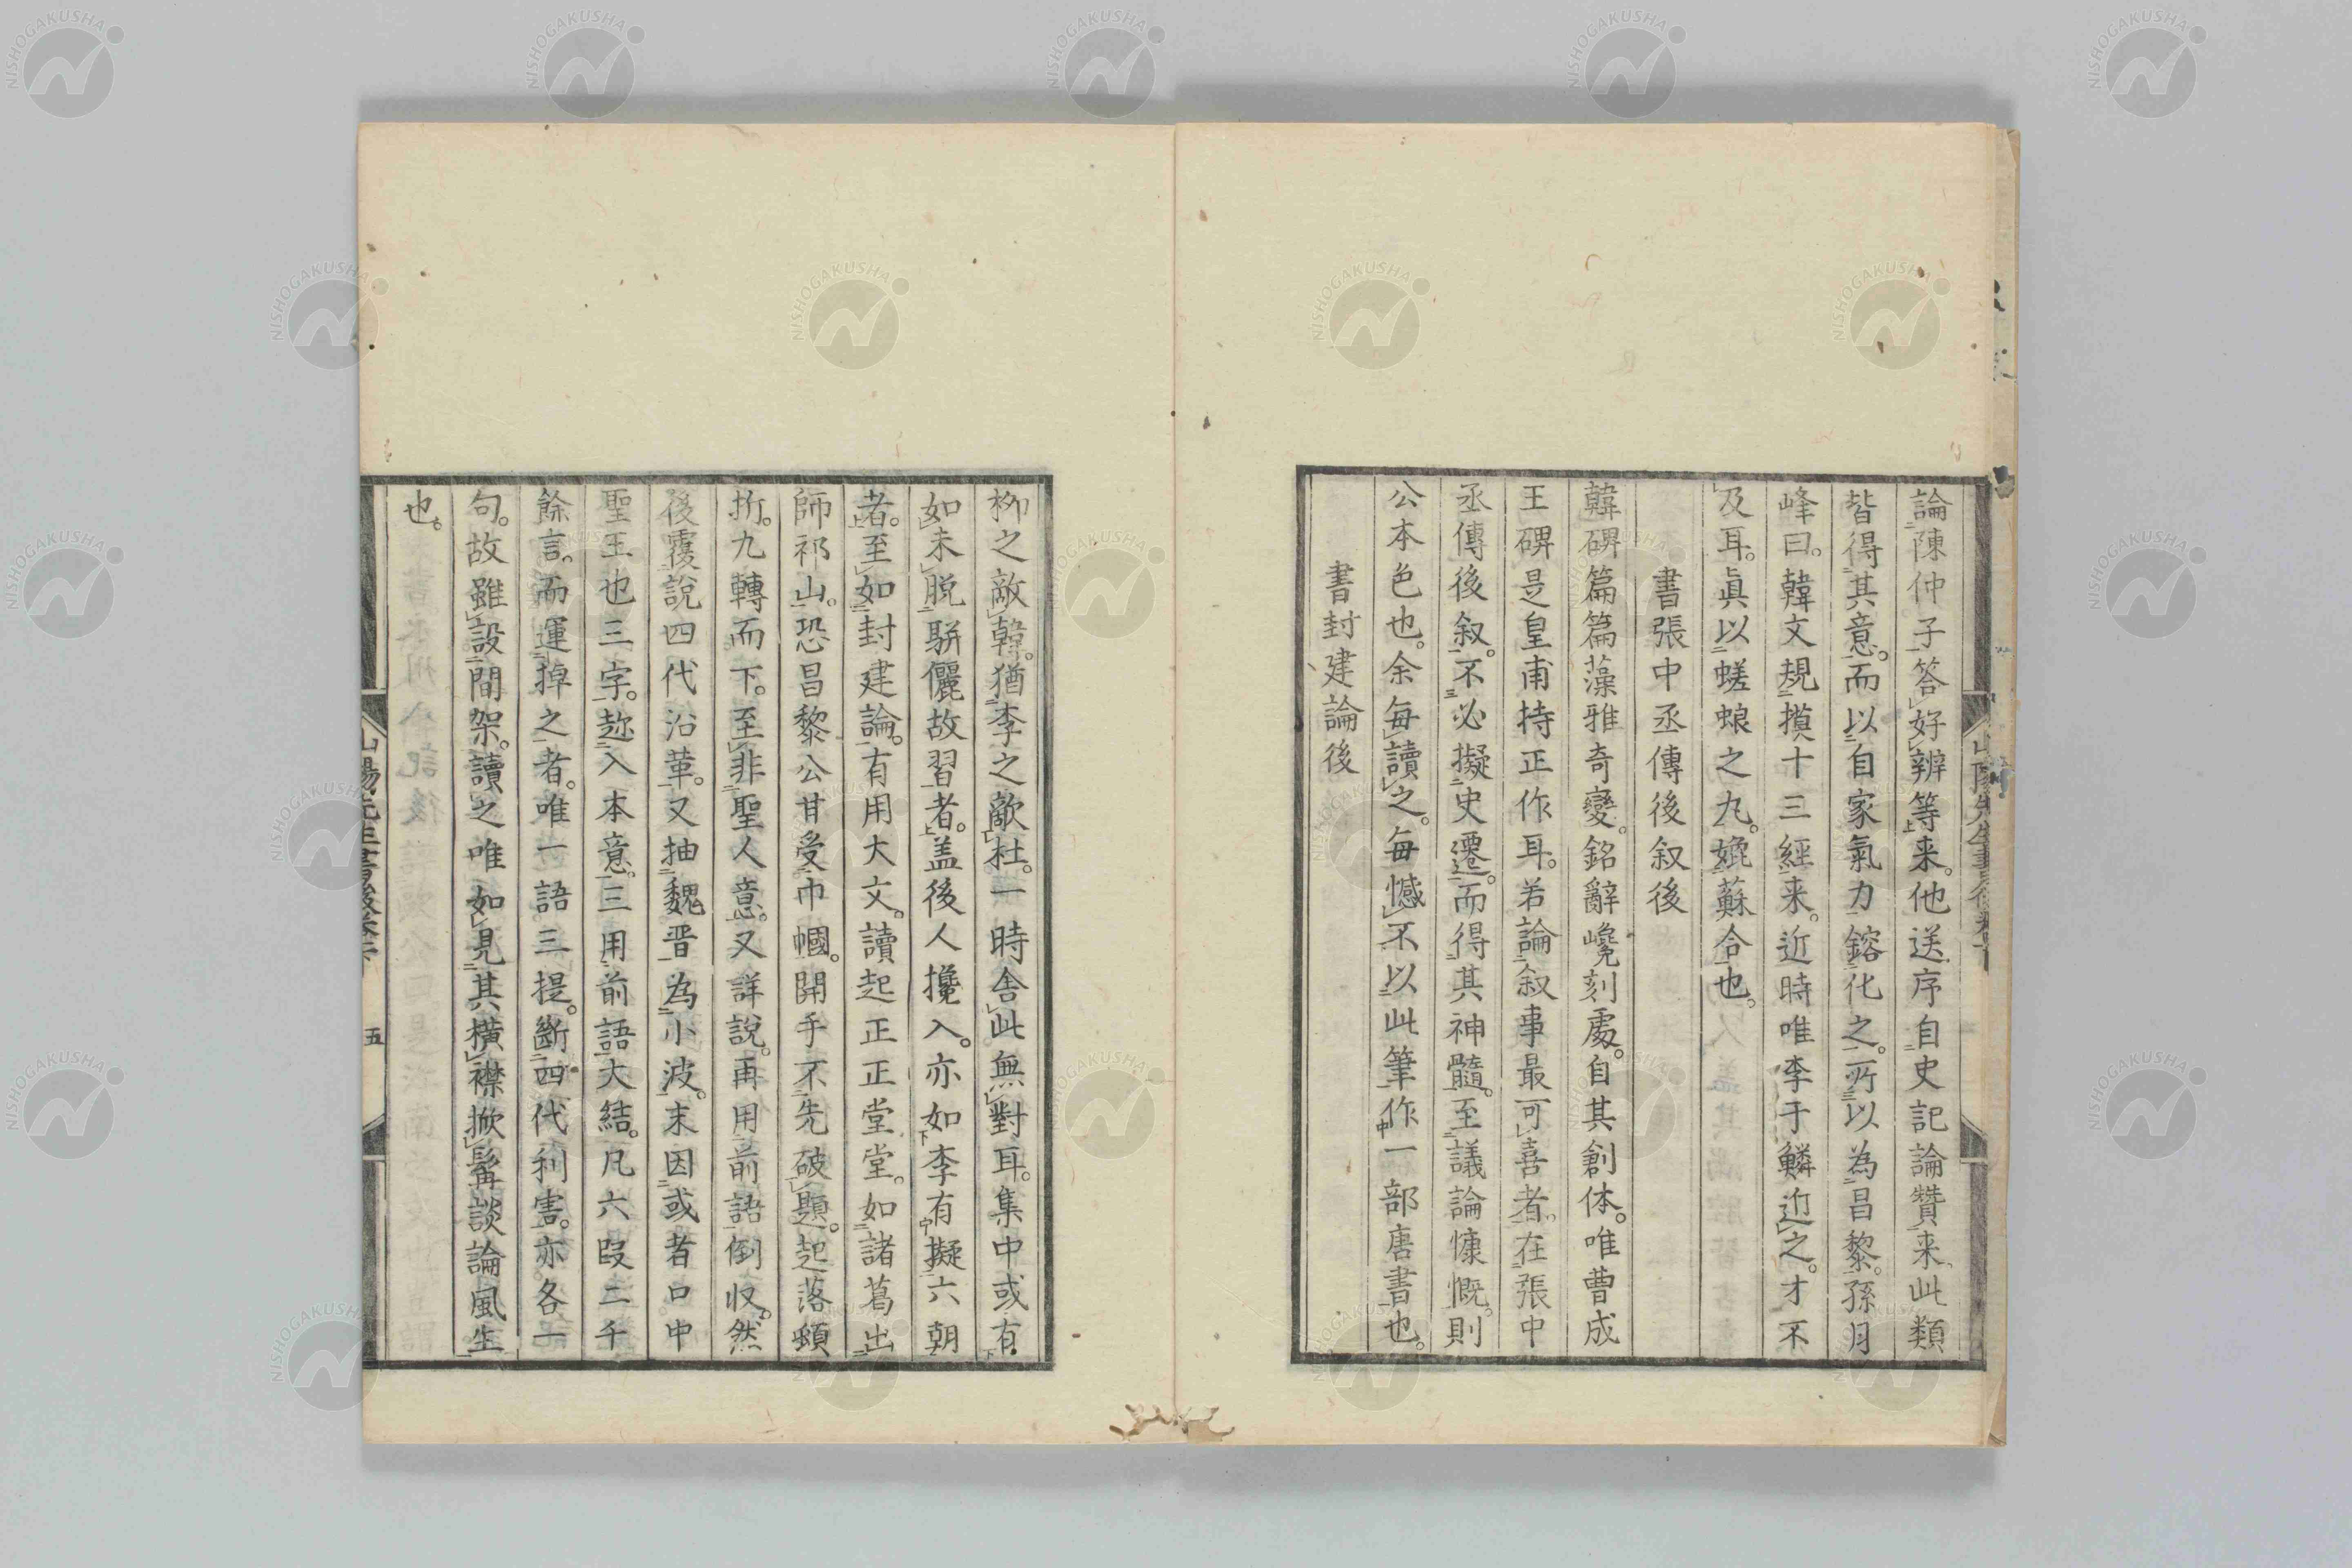 論陳仲子答好辨等来。他送序自史記論贊来。此類
皆得其意。而以自家氣力鎔化之。所以為昌黎。孫月
峰曰。韓文規摸十三經来。近時唯李于鱗近之。才不
及耳。眞以蜣蜋之丸。媲蘇合也。
書張中丞傳後叙後
韓碑篇篇藻雅奇變。銘辭巉刻處。自其創体。唯曹成
王碑是皇甫持正作耳。若論叙事最可喜者。在張中
丞傳後叙。不必擬史遷。而得其神髓。至議論慷慨。則
公本色也。余毎讀之。毎憾不以此筆作一部唐書也。
書封建論後
柳之敵韓。猶李之敵杜。一時舍此無對耳。集中或有
如未脱駢儷故習者。盖後人攙入。亦如李有擬六朝
者。至如封建論。有用大文。讀起正正堂堂。如諸葛出
師祁山。恐昌黎公甘受巾幗。開手不先破題。起落頓
折。九轉而下。至非聖人意。又詳說。再用前語倒収。然
後覆說四代沿革。又抽魏晋為小波。末因或者口中
聖王也三字。趂入本意。三用前語大結。凡六段二千
餘言。而運掉之者。唯一語三提。斷四代利害。亦各一
句。故雖設間架。讀之唯如見其横襟掀髯談論風生
也。
山陽先生書後卷下
五
NISHOGAKUSHA